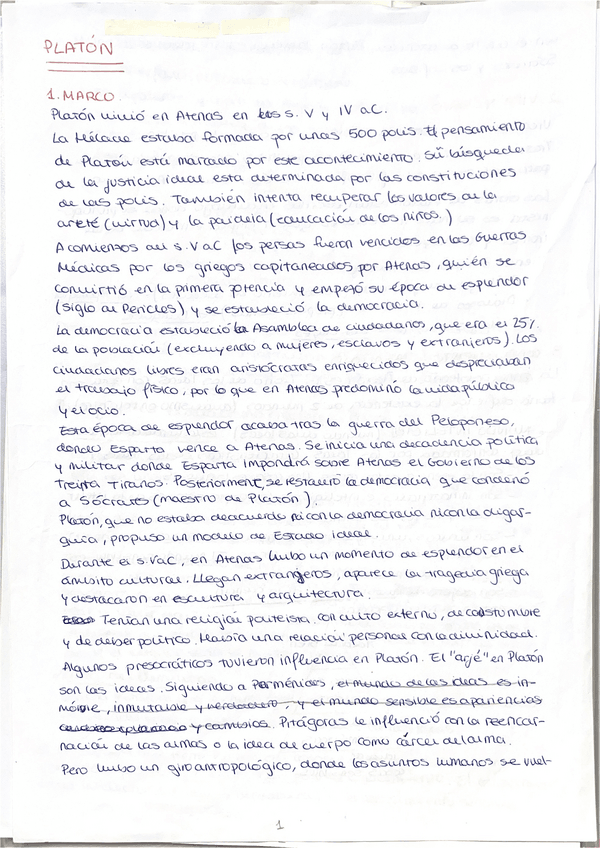 PLATÓN
1. MARCO.
Platón vivió en Atenas en los s. V y IV aC.
La Hélade estaba formada por unas 500 polis. El pensamiento
de Platón está marcado por este acontecimiento. Su búsqueda
de la justicia ideal esta determinada por las constituciones
de las polis. También intenta recuperar los valores de la
areté (virtud) y la paideia (educación de los niños.)
A comienzos del s. V aC los persas fueron vencidos en las Guerras
Médicas por los griegos capitaneados por Atenas, quién se
convirtió en la primera potencia y empezó su época de esplendor
(siglo de Pericles) y se estableció la democracia.
La democracia estableció la Asamblea de ciudadanos, que era el 25%
de la población (excluyendo a mujeres, esclavos y extranjeros). Los
ciudadanos libres eran aristócratas enriquecidos que despreciaban
el trabajo físico, por lo que en Atenas predominó la vida pública
y el ocio.
Esta época de esplendor acaba tras la guerra del Peloponeso,
donde Esparta vence a Atenas. Se inicia una decadencia política
y militar donde Esparta impondrá sobre Atenas el Gobierno de los
Treinta Tiranos. Posteriorment, se restauró la democracia que condenó
a Sócrates (maestro de Platón).
Platón, que no estaba deacuerdo ni con la democracia ni con la oligar-
quía, propuso un modelo de Estado ideal.
Durante el s. V aC, en Atenas hubo un momento de esplendor en el
ámbito cultural. Llegan extranjeros, aparece la tragedia griega
y destacaron en escultura y arquitectura.
Tenían una religión politeísta, con culto externo, de costumbre
y de deber político. Había una relación personal con la divinidad.
Algunos presocráticos tuvieron influencia en Platón. El "arjé" en Platón
son las ideas. Siguiendo a Parménides, el mundo de las ideas es in-
móvil, inmutable y verdadero, y el mundo sensible es apariencias
y cambios. Pitágoras le influenció con la reencar-
nación de las almas o la idea de cuerpo como cárcel del alma.
Pero hubo un giro antropológico, donde los asuntos humanos se vuel-
1